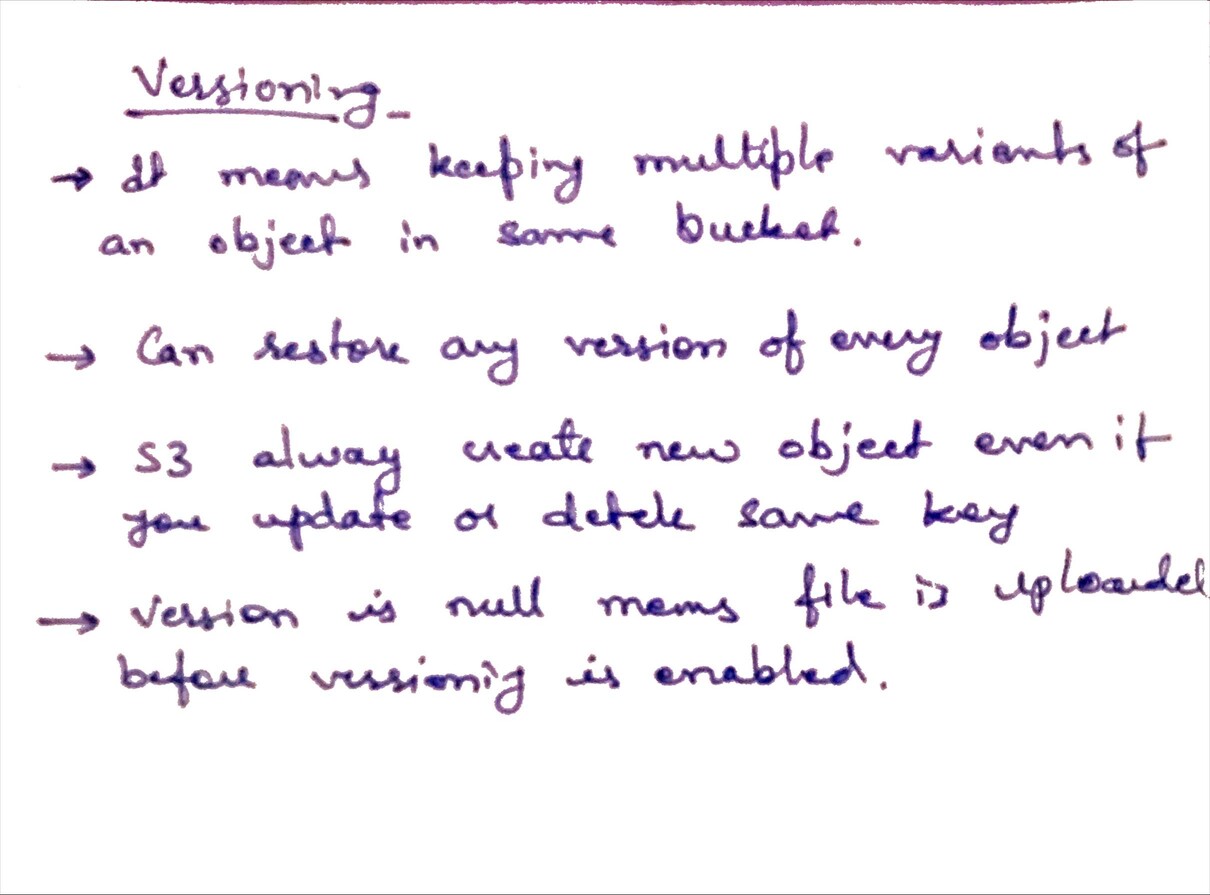 Versioning -
→ It means keeping multiple varients of
an object in same bucket.
→ Can restore any version of every object
→ S3 alway create new object even if
you update or detele same key
→ Version is null means file is uploaded
before versionig is enabled.